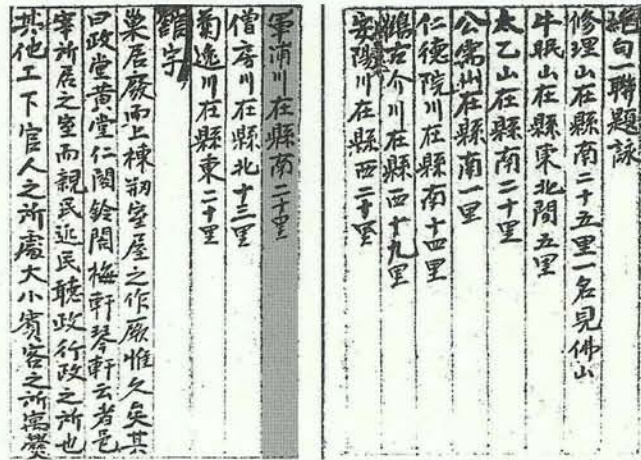 絶句一聯題詠
修理山在縣南二十五里一名見佛山
牛眠山在縣東北間五里
太乙山在縣南二十里
公需山在縣南一里
仁德院川在縣南十四里
鵂古介川在縣西十九里
安陽川在縣西二十里
軍浦川在縣南二十里
僧房川在縣北十三里
菊逸川在縣東二十里
館宇
巢居廢而上棟剏室屋之作厥惟久矣其
曰政堂黃堂仁閣鈴閣梅軒琴軒云者是
宰所居之室而親民近民聽政行政之所也
其他工下官人之所處大小賓客之所寓爨